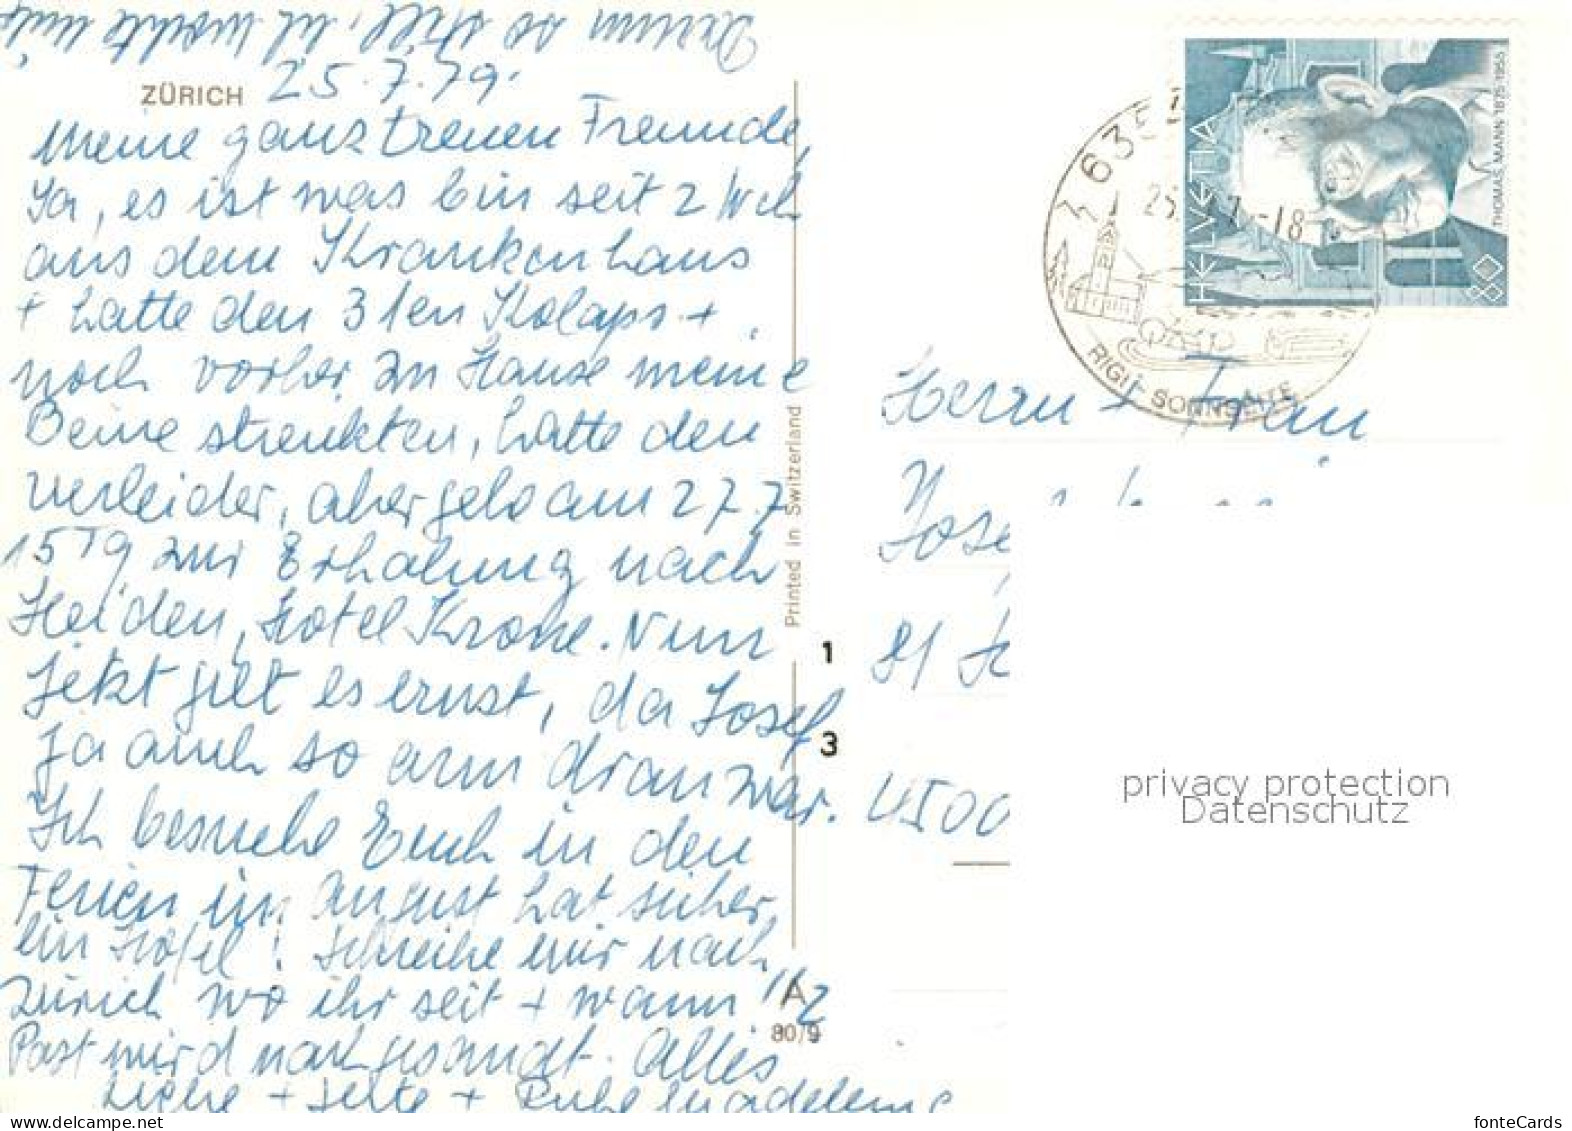 ZÜRICH 25.7.79.
Meine ganz treuen Freunde,
Ja, es ist was bin seit 2 Wch
aus dem Krankenhaus
+ hatte den 3ten Kolaps +
noch vorher zu Hause meine
Beine streikten, hatte den
verleider, aber gehe am 27.7.
zur Erholung nach
Heiden, Hotel Krone. Nun
jetzt gilt es ernst, da Josef
ja auch so arm dran war.
Ich besuche Euch in den
Ferien im August hat sicher
ein Hotel! Schreibe mir nach
Zürich wo ihr seit + wann
Post wird nachgesandt. Alles
Liebe + + Ruhe Madeleine
Darum so still, ich möchte
Printed in Switzerland
1
3
A
80/9
HELVETIA
THOMAS MANN 1875-1955
80
635
25. -18
RIGI-SONNSEITE
Herrn + Frau
Jose
4500
privacy protection
Datenschutz
fonteCards